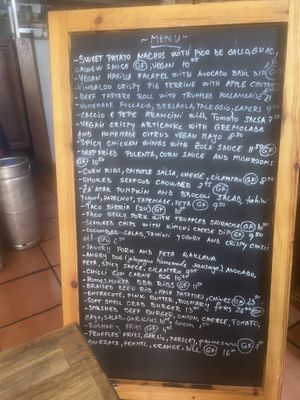 MENU
- SWEET PATATO NACHOS WITH PICO DE GALLO, GUAC,
CASHEW SAUCE GF, VEGAN 10
- VEGAN HARISSA FALAFEL WITH AVOCADO BASIL DIP
- VINDALOO CRISPY PIG TERRINE WITH APPLE
- BEEF TARTERE ROLL WITH TRUFFLES HOLLANDAISE
- HOMEMADE FOCCACIA, BRESAOLA, TALEGGIO, CAPERS 9
- CACCIO E PEPE ARANCINI WITH TOMATO SALSA
- VEGAN CRISPY ARTICHOKE WITH GREMOLADA
AND HOMEMADE CITRUS VEGAN MAYO
- SPICY CHICKEN WINGS WITH COLA SAUCE 11 GF
- DEEP FRIED POLENTA, CORN SAUCE AND MUSHROOMS
GF 10
- CORN RIBS, CHIPOTLE SALSA, CHEESE, CILANTRO GF 8
- SMOKED SEAFOOD CHOWDER 9 GF
- ZA'ATAR PUMPKIN AND BROCCOLI SALAD, TAHINI
YOGURT, HAZELNUT, TAPENADE, FETA GF 9
- TACO BIRRIA GF 10
- TACO BELLY PORK WITH TRUFFLES SRIRACHA GF 10
- SEAWEED CHIPS WITH KIMCHI CHEESE DIP GF 9
- CUCUMBER SALAD, TAHINI YOGURT AND CRISPY CHILLI
OIL GF
- SAVOURY PORK AND FETA BAKLAVA
- ANGRY DOG (jalapegno homemade sausage) AVOCADO,
FETA, SPICY SAUCE, CILANTRO 9
- CHILLI CON CARNE DOG 10
- HOMESMOKED BBQ RIBS GF
- BRAISED BEEF RIB, MASH POTATOES, CHIVES GF 23
- ENTRECOTE, PINK BUTTER, ROSEMARY FRIES 26 GF
- SOFT SHELL CRAB BURGER 13
- SMASHED BEEF BURGER, ONION, CHEESE, TOMATO,
MAYO, SALAD, GERKINS 10
- ROSMARY FRIES GF 4
- TRUFFLES FRIES, GARLIC, PARSLEY, PARMESAN GF
- BURRATA, FENNEL, ORANGE, DILL GF 16